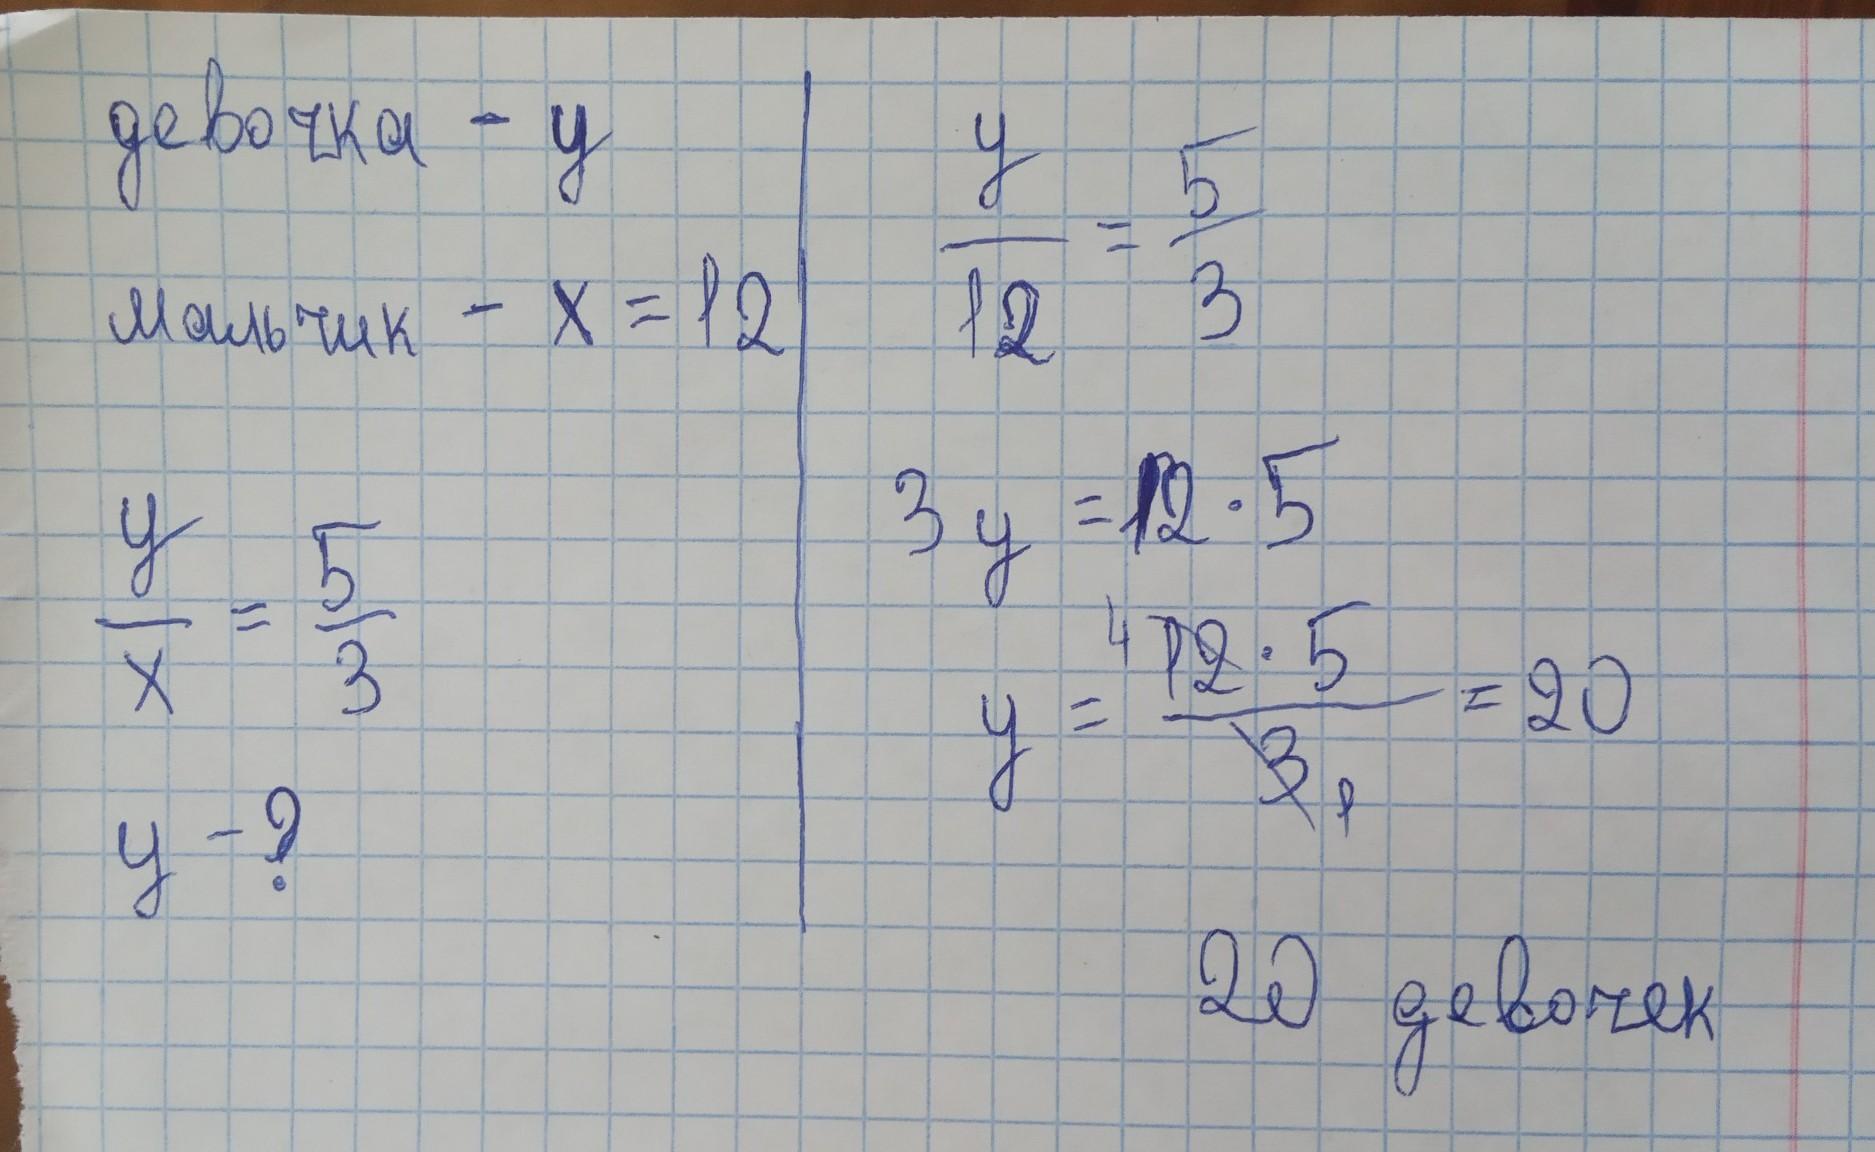 девочка - y
мальчик - x = 12
y/x = 5/3
y - ?
y/12 = 5/3
3y = 12 · 5
y = ⁴12 · 5 / 3₁ = 20
20 девочек